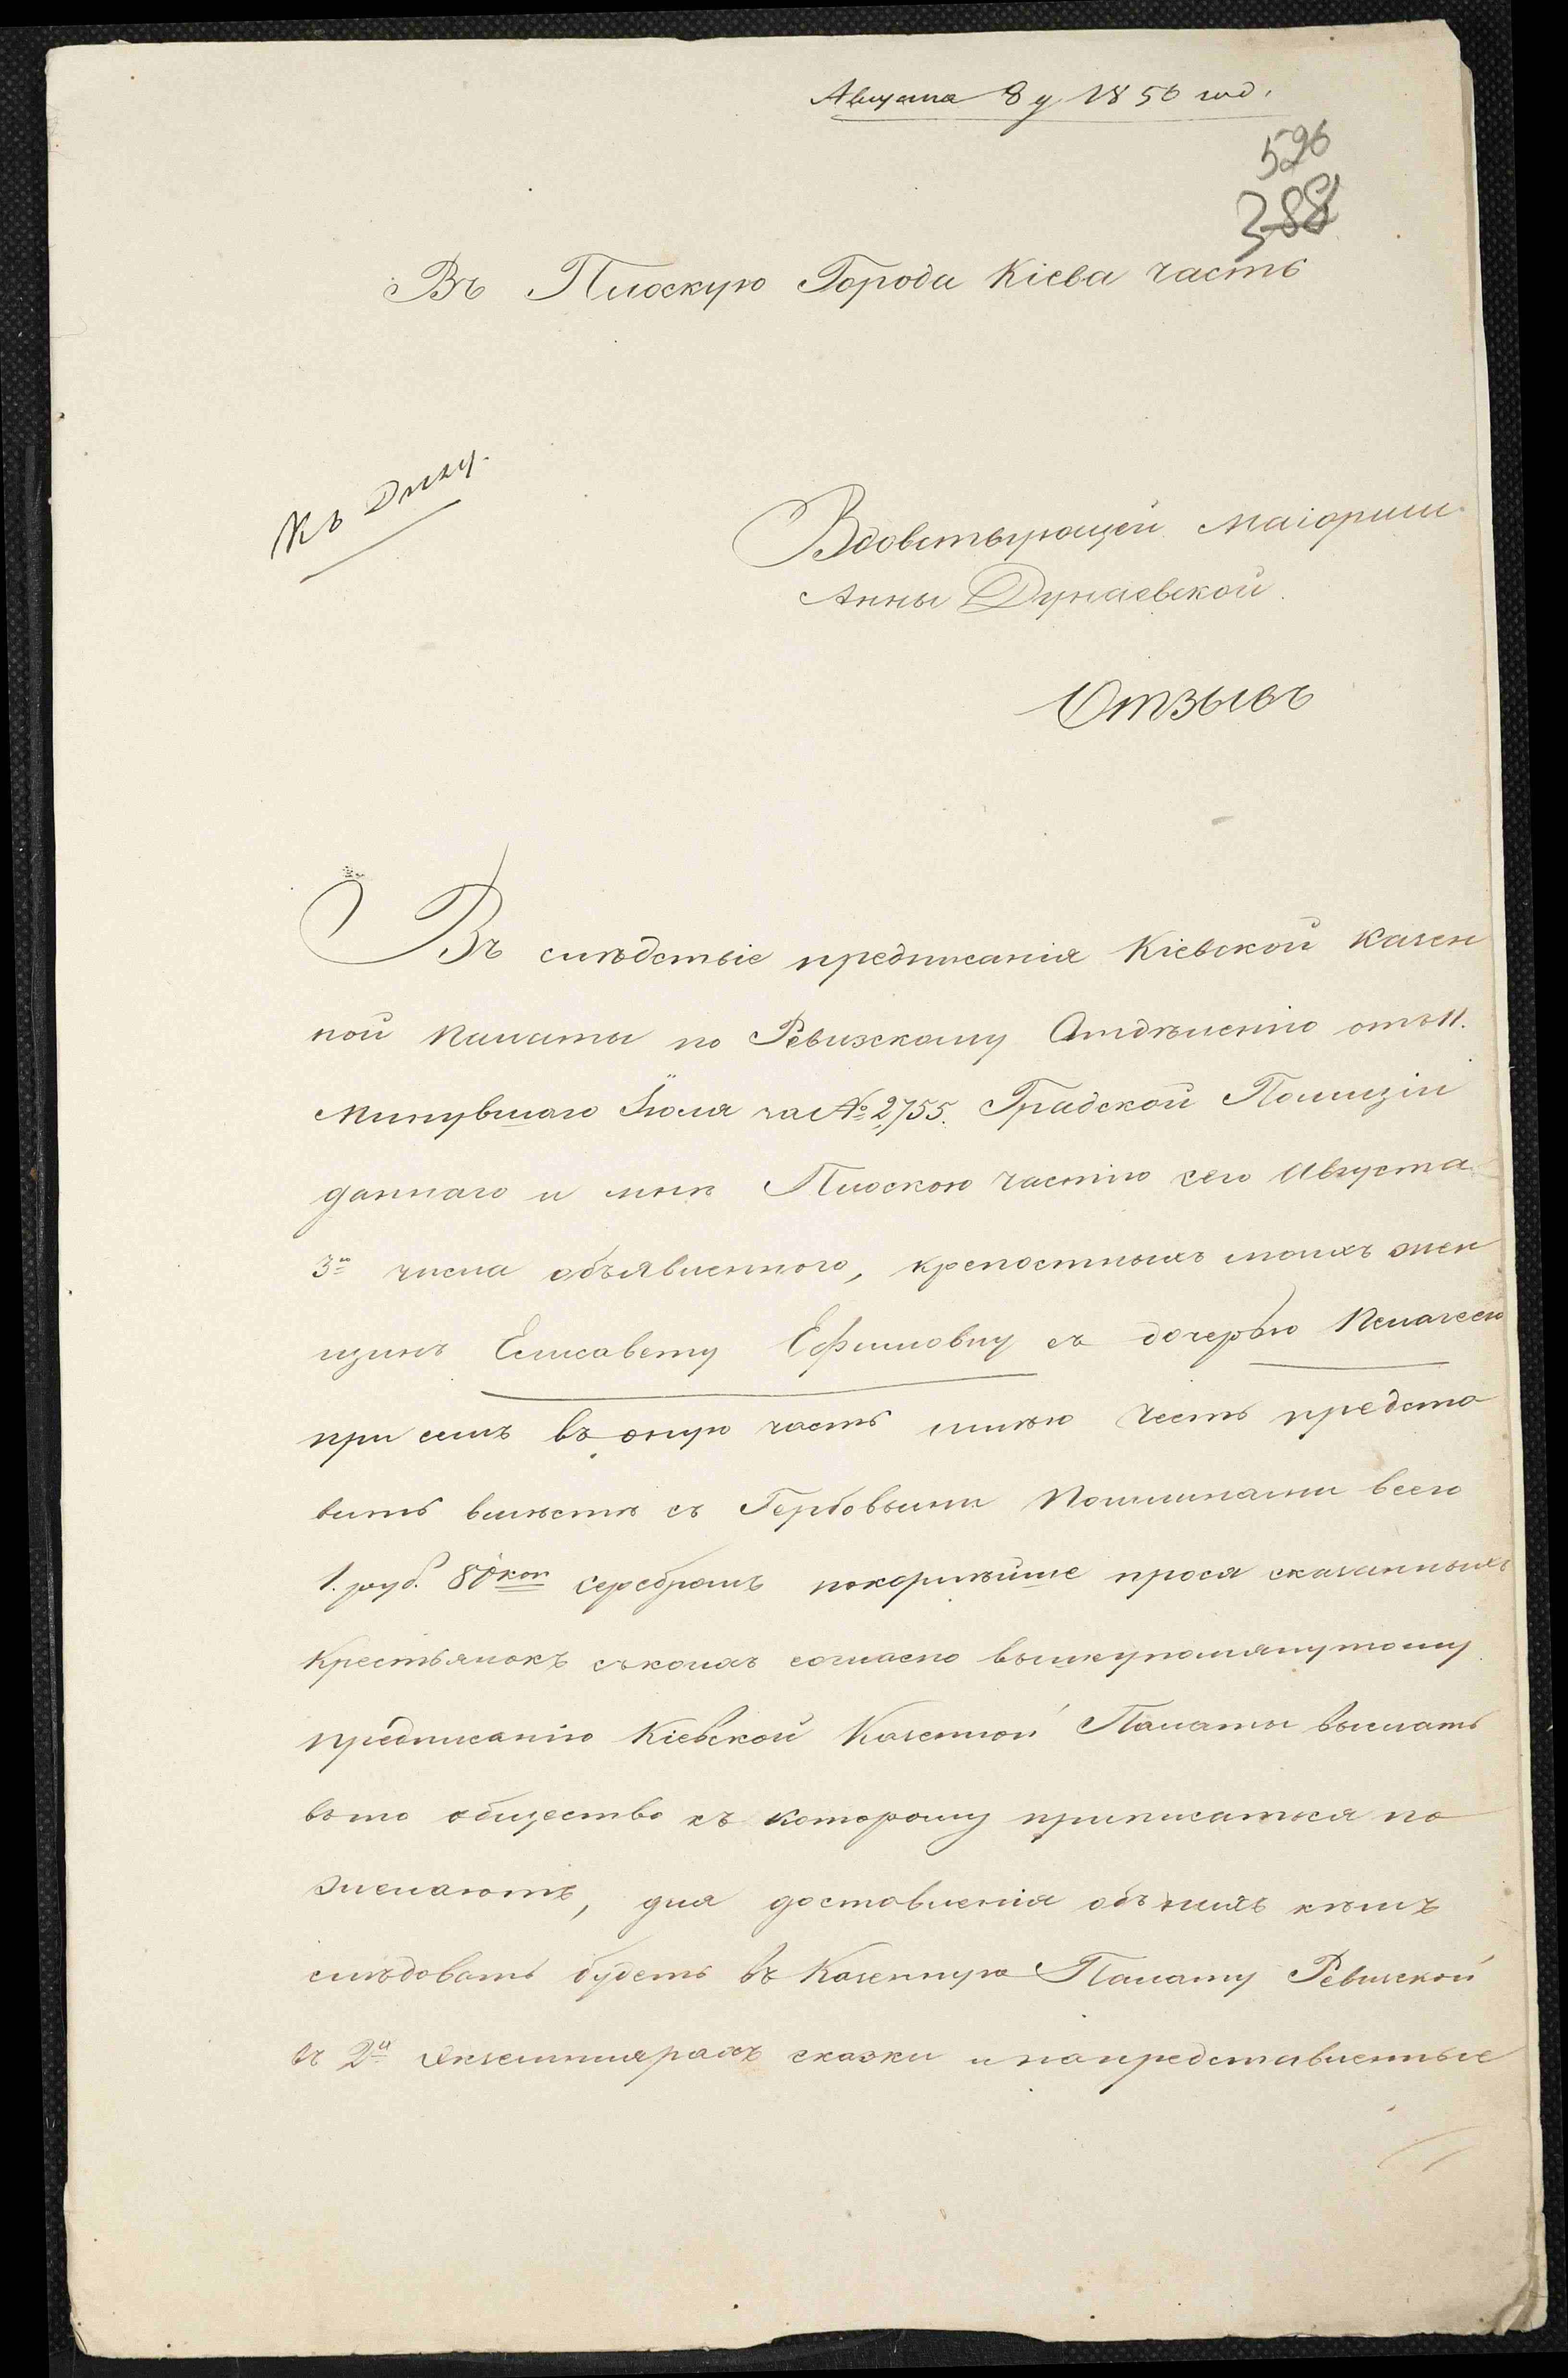 Августа 8 д 1856 год.
526
388
Въ Плоскую Города Кіева часть
Къ Дѣлу.
Вдовствующей маіорши
Анны Дунаевской.
Отзывъ
Въ слѣдствіе предписанія Кіевской Казен
ной Палаты по Ревизскому Отдѣленію отъ 11.
Минувшаго Іюля за № 2755. Градской Полиціи
даннаго и мнѣ Плоскою частію сего Августа
3го числа объявленного, крепостныхъ моихъ жен
щинъ Елисавету Ефимовну съ дочерью Пелагеею
при семъ въ оную часть имѣю честь предста
вить вмѣстѣ съ Гербовыми Пошлинами всего
1. руб. 80 коп серебромъ покорнѣйше прося сказанныхъ
Крестьянокъ съ комъ согласно вышеупомянутому
предписанію Кіевской Казенной Палаты выслать
въ то общество къ которому приписаться по
желаютъ, для доставленія объ нихъ кѣмъ
слѣдовать будетъ въ Казенную Палату Ревизской
въ 2х экземплярахъ сказки и на представленные